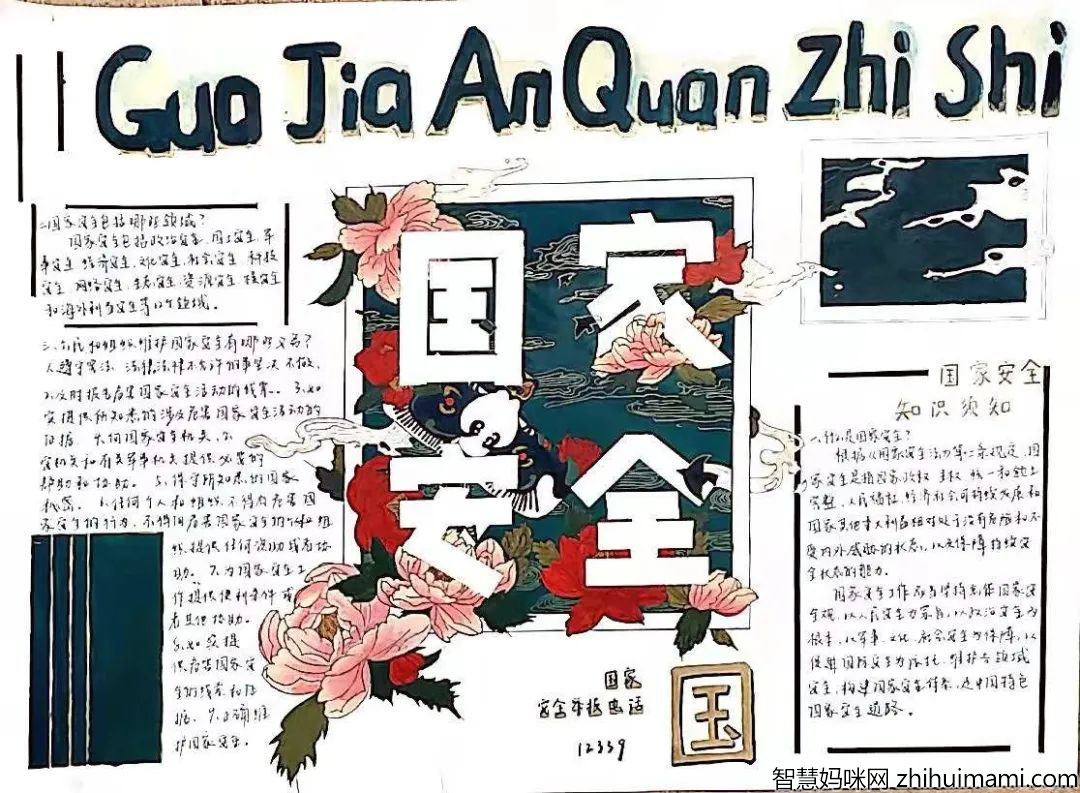 Guo Jia An Quan Zhi Shi
国家
安全
二.国家安全包括哪些领域?
国家安全包括政治安全、国土安全、军
事安全、经济安全、文化安全、社会安全、科技
安全、网络安全、生态安全、资源安全、核安全
和海外利益安全等12个领域。
三.公民和组织维护国家安全有哪些义务?
1.遵守宪法、法律法规
2.及时报告危害国家安全活动的线索。 3.如
实提供所知悉的涉及危害国家安全活动的
证据 4.
国家安全机关、公
安机关和有关军事机关提供必要的
帮助和协助。 5.保守所知悉的国家
秘密。 6.任何个人和组织不得有危害国
家安全的行为,不得向危害国家安全的个人和组
织提供任何资助或者协
助。 7.为国家安全工
作提供便利条件或
者其他协助。
8.如实提
供危害国家安
全的线索和证
据。 9.正确维
护国家安全。
国家安全
知识须知
一.什么是国家安全?
根据《国家安全法》第二条规定,国
家安全是指国家政权、主权、统一和领土
完整、人民福祉、经济社会可持续发展和
国家其他重大利益相对处于没有危险和不
受内外威胁的状态,以及保障持续安
全状态的能力。
国家安全工作应当坚持总体国家安
全观,以人民安全为宗旨,以政治安全为
根本,以军事、文化、社会安全为保障,以
促进国际安全为依托,维护各领域
安全,构建国家安全体系,走中国特色
国家安全道路。
国家
安全举报电话
12339
国
智慧妈咪网 zhihuimami.com